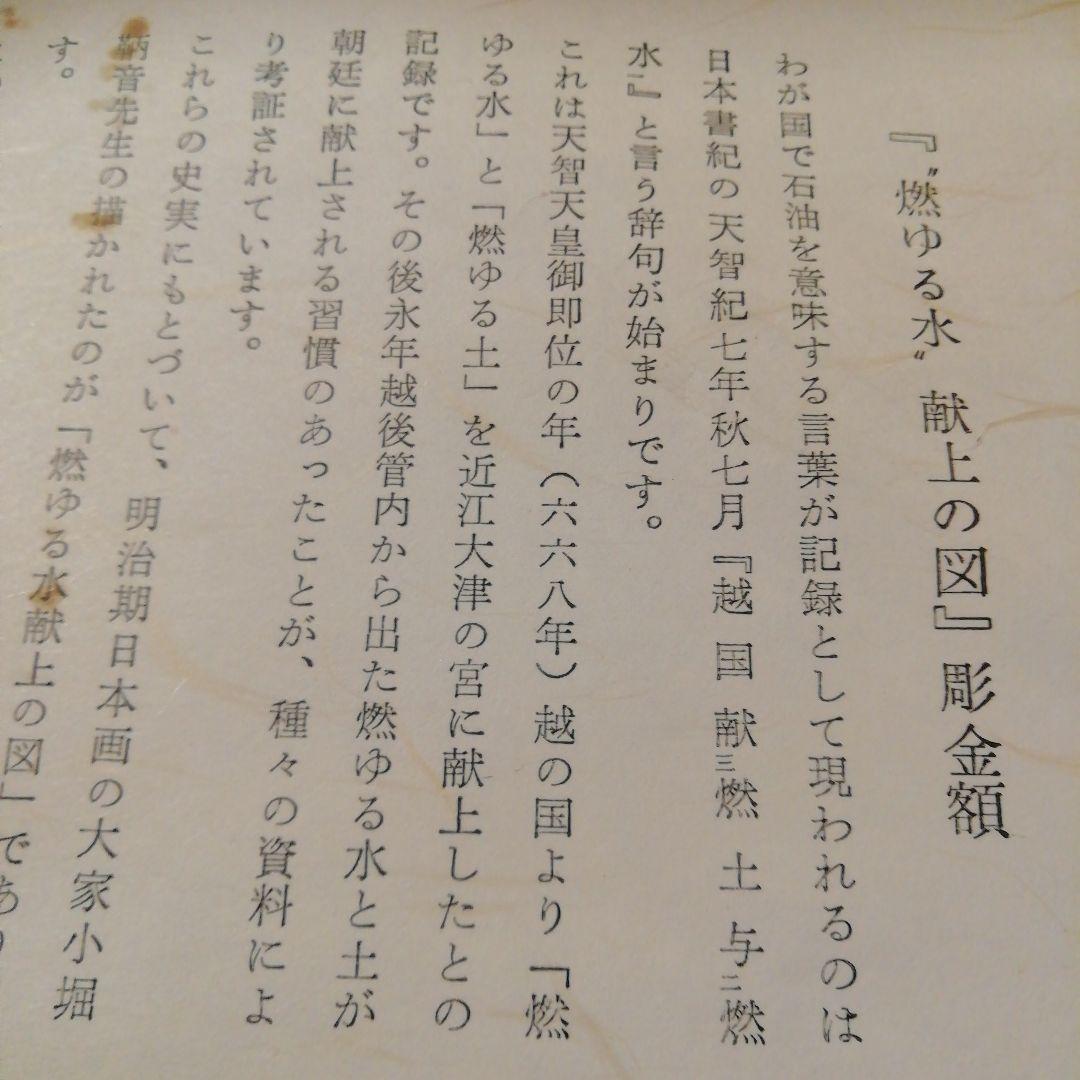 『〝燃ゆる水〟献上の図』彫金額
わが国で石油を意味する言葉が記録として現われるのは
日本書紀の天智紀七年秋七月『越国献三燃土与二燃
水』と言う辞句が始まりです。
これは天智天皇御即位の年（六六八年）越の国より「燃
ゆる水」と「燃ゆる土」を近江大津の宮に献上したとの
記録です。その後永年越後管内から出た燃ゆる水と土が
朝廷に献上される習慣のあったことが、種々の資料によ
り考証されています。
これらの史実にもとづいて、明治期日本画の大家小堀
鞆音先生の描かれたのが「燃ゆる水献上の図」であり
す。